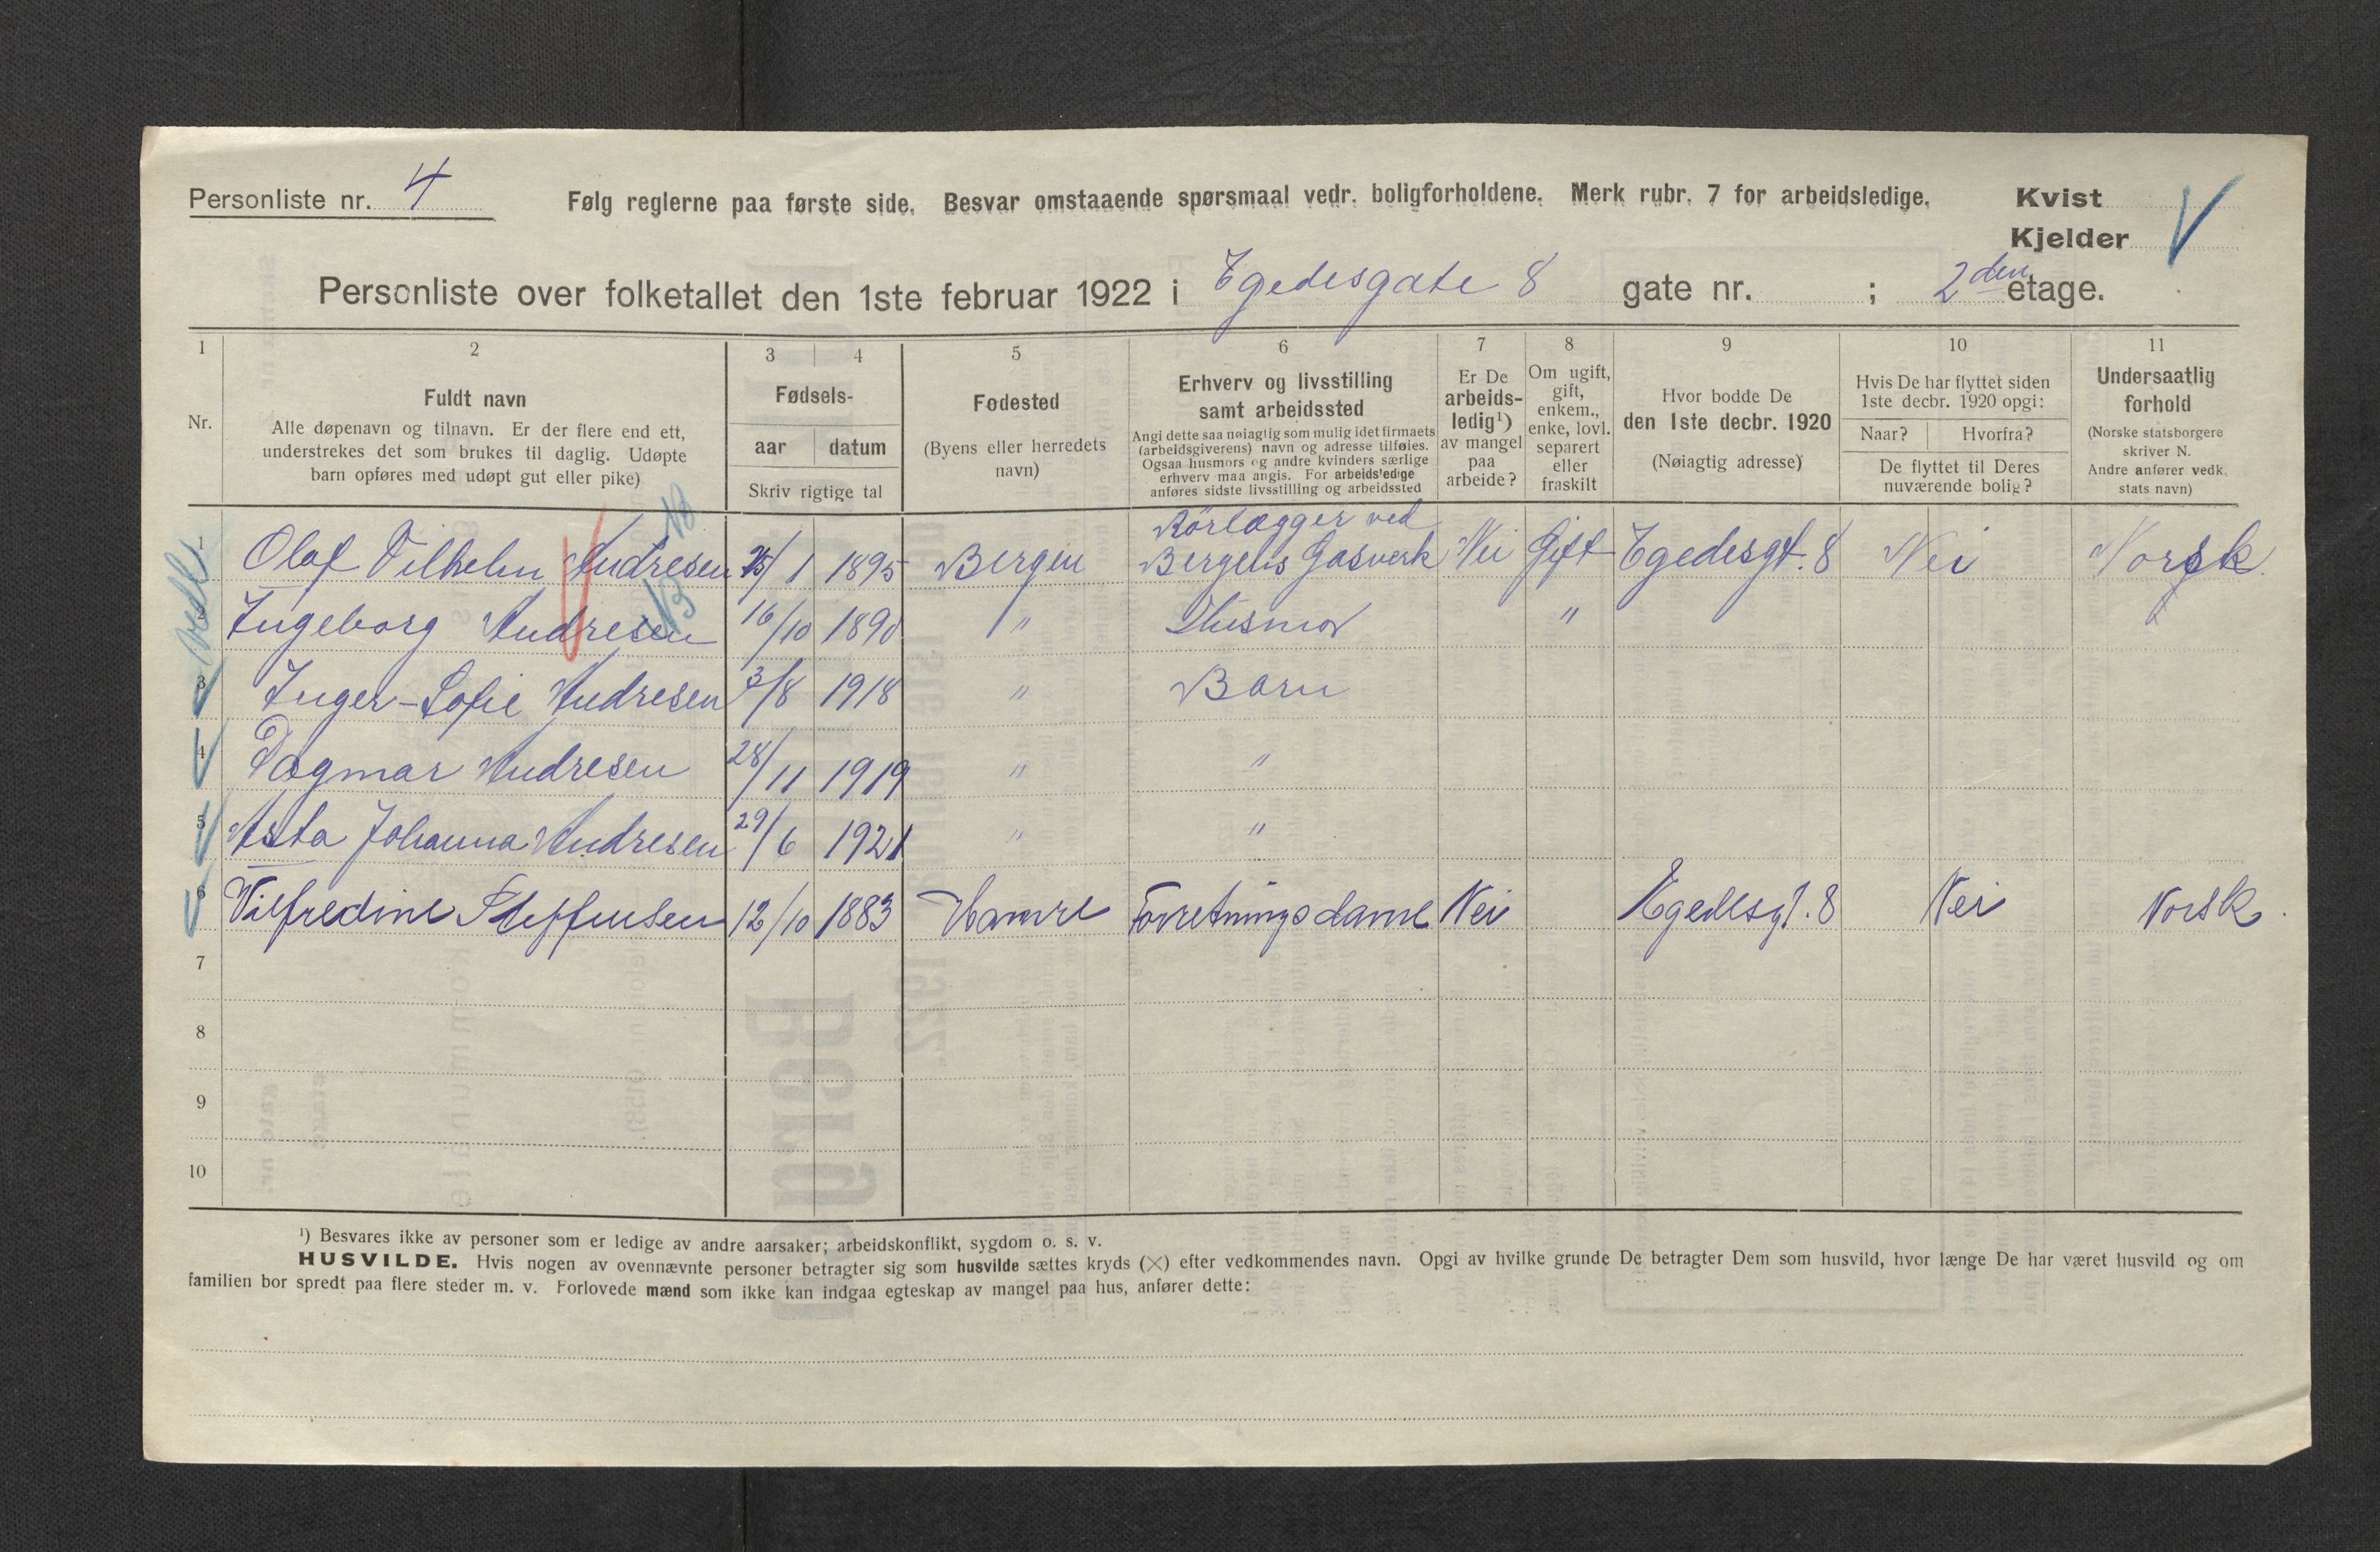 Personliste nr. 4
Følg reglerne paa første side. Besvar omstaaende spørsmaal vedr. boligforholdene. Merk rubr. 7 for arbeidsledige.
Kvist
Kjelder
Personliste over folketallet den 1ste februar 1922 i Egedesgate 8 gate nr. ; 2den etage.
1 2 3 4 5 6 7 8 9 10 11
Nr.
Fuldt navn
Alle døpenavn og tilnavn. Er der flere end ett,
understrekes det som brukes til daglig. Udøpte
barn opføres med udøpt gut eller pike)
Fødsels-
aar datum
Skriv rigtige tal
Fodested
(Byens eller herredets
navn)
Erhverv og livsstilling
samt arbeidssted
Angi dette saa nøiagtig som mulig idet firmaets
(arbeidsgiverens) navn og adresse tilføies.
Ogsaa husmors og andre kvinders særlige
erhverv maa angis. For arbeidsledige
anføres sidste livsstilling og arbeidssted
Er De
arbeids-
ledig¹)
av mangel
paa
arbeide?
Om ugift,
gift,
enkem.,
enke, lovl.
separert
eller
fraskilt
Hvor bodde De
den 1ste decbr. 1920
(Nøiagtig adresse)
Hvis De har flyttet siden
1ste decbr. 1920 opgi:
Naar? Hvorfra?
De flyttet til Deres
nuværende bolig?
Undersaatlig
forhold
(Norske statsborgere
skriver N.
Andre anfører vedk.
stats navn)
Rörlægger ved
1 Olaf Vilhelm Andresen 25/1 1895 Bergen Bergens Gasverk Nei Gift Egedesgt. 8 Nei Norsk.
2 Ingeborg Andresen 16/10 1890 " Husmor "
3 Inger-Sofie Andresen 3/8 1918 " Barn
4 Dagmar Andresen 28/11 1919 " "
5 Asta Johanna Andresen 29/6 1921 " "
6 Vilfredine Steffensen 12/10 1883 Hamre Forretningsdame Nei Egedesgt. 8 Nei Norsk.
7
8
9
10
¹) Besvares ikke av personer som er ledige av andre aarsaker; arbeidskonflikt, sygdom o. s. v.
HUSVILDE. Hvis nogen av ovennævnte personer betragter sig som husvilde sættes kryds (×) efter vedkommendes navn. Opgi av hvilke grunde De betragter Dem som husvild, hvor længe De har været husvild og om
familien bor spredt paa flere steder m. v. Forlovede mænd som ikke kan indgaa egteskap av mangel paa hus, anfører dette: